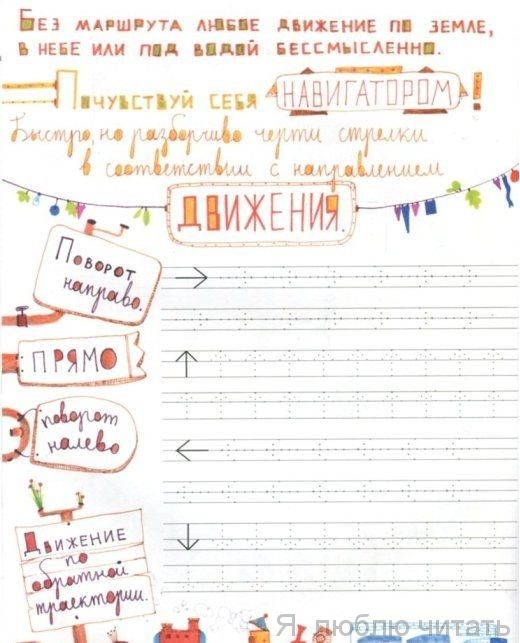 Без маршрута любое движение по земле,
в небе или под водой бессмысленно.
Почувствуй себя НАВИГАТОРОМ!
Быстро, но разборчиво черти стрелки
в соответствии с направлением
ДВИЖЕНИЯ.
Поворот
направо.
ПРЯМО
поворот
налево
Движение
по
обратной
траектории.
Я люблю читать